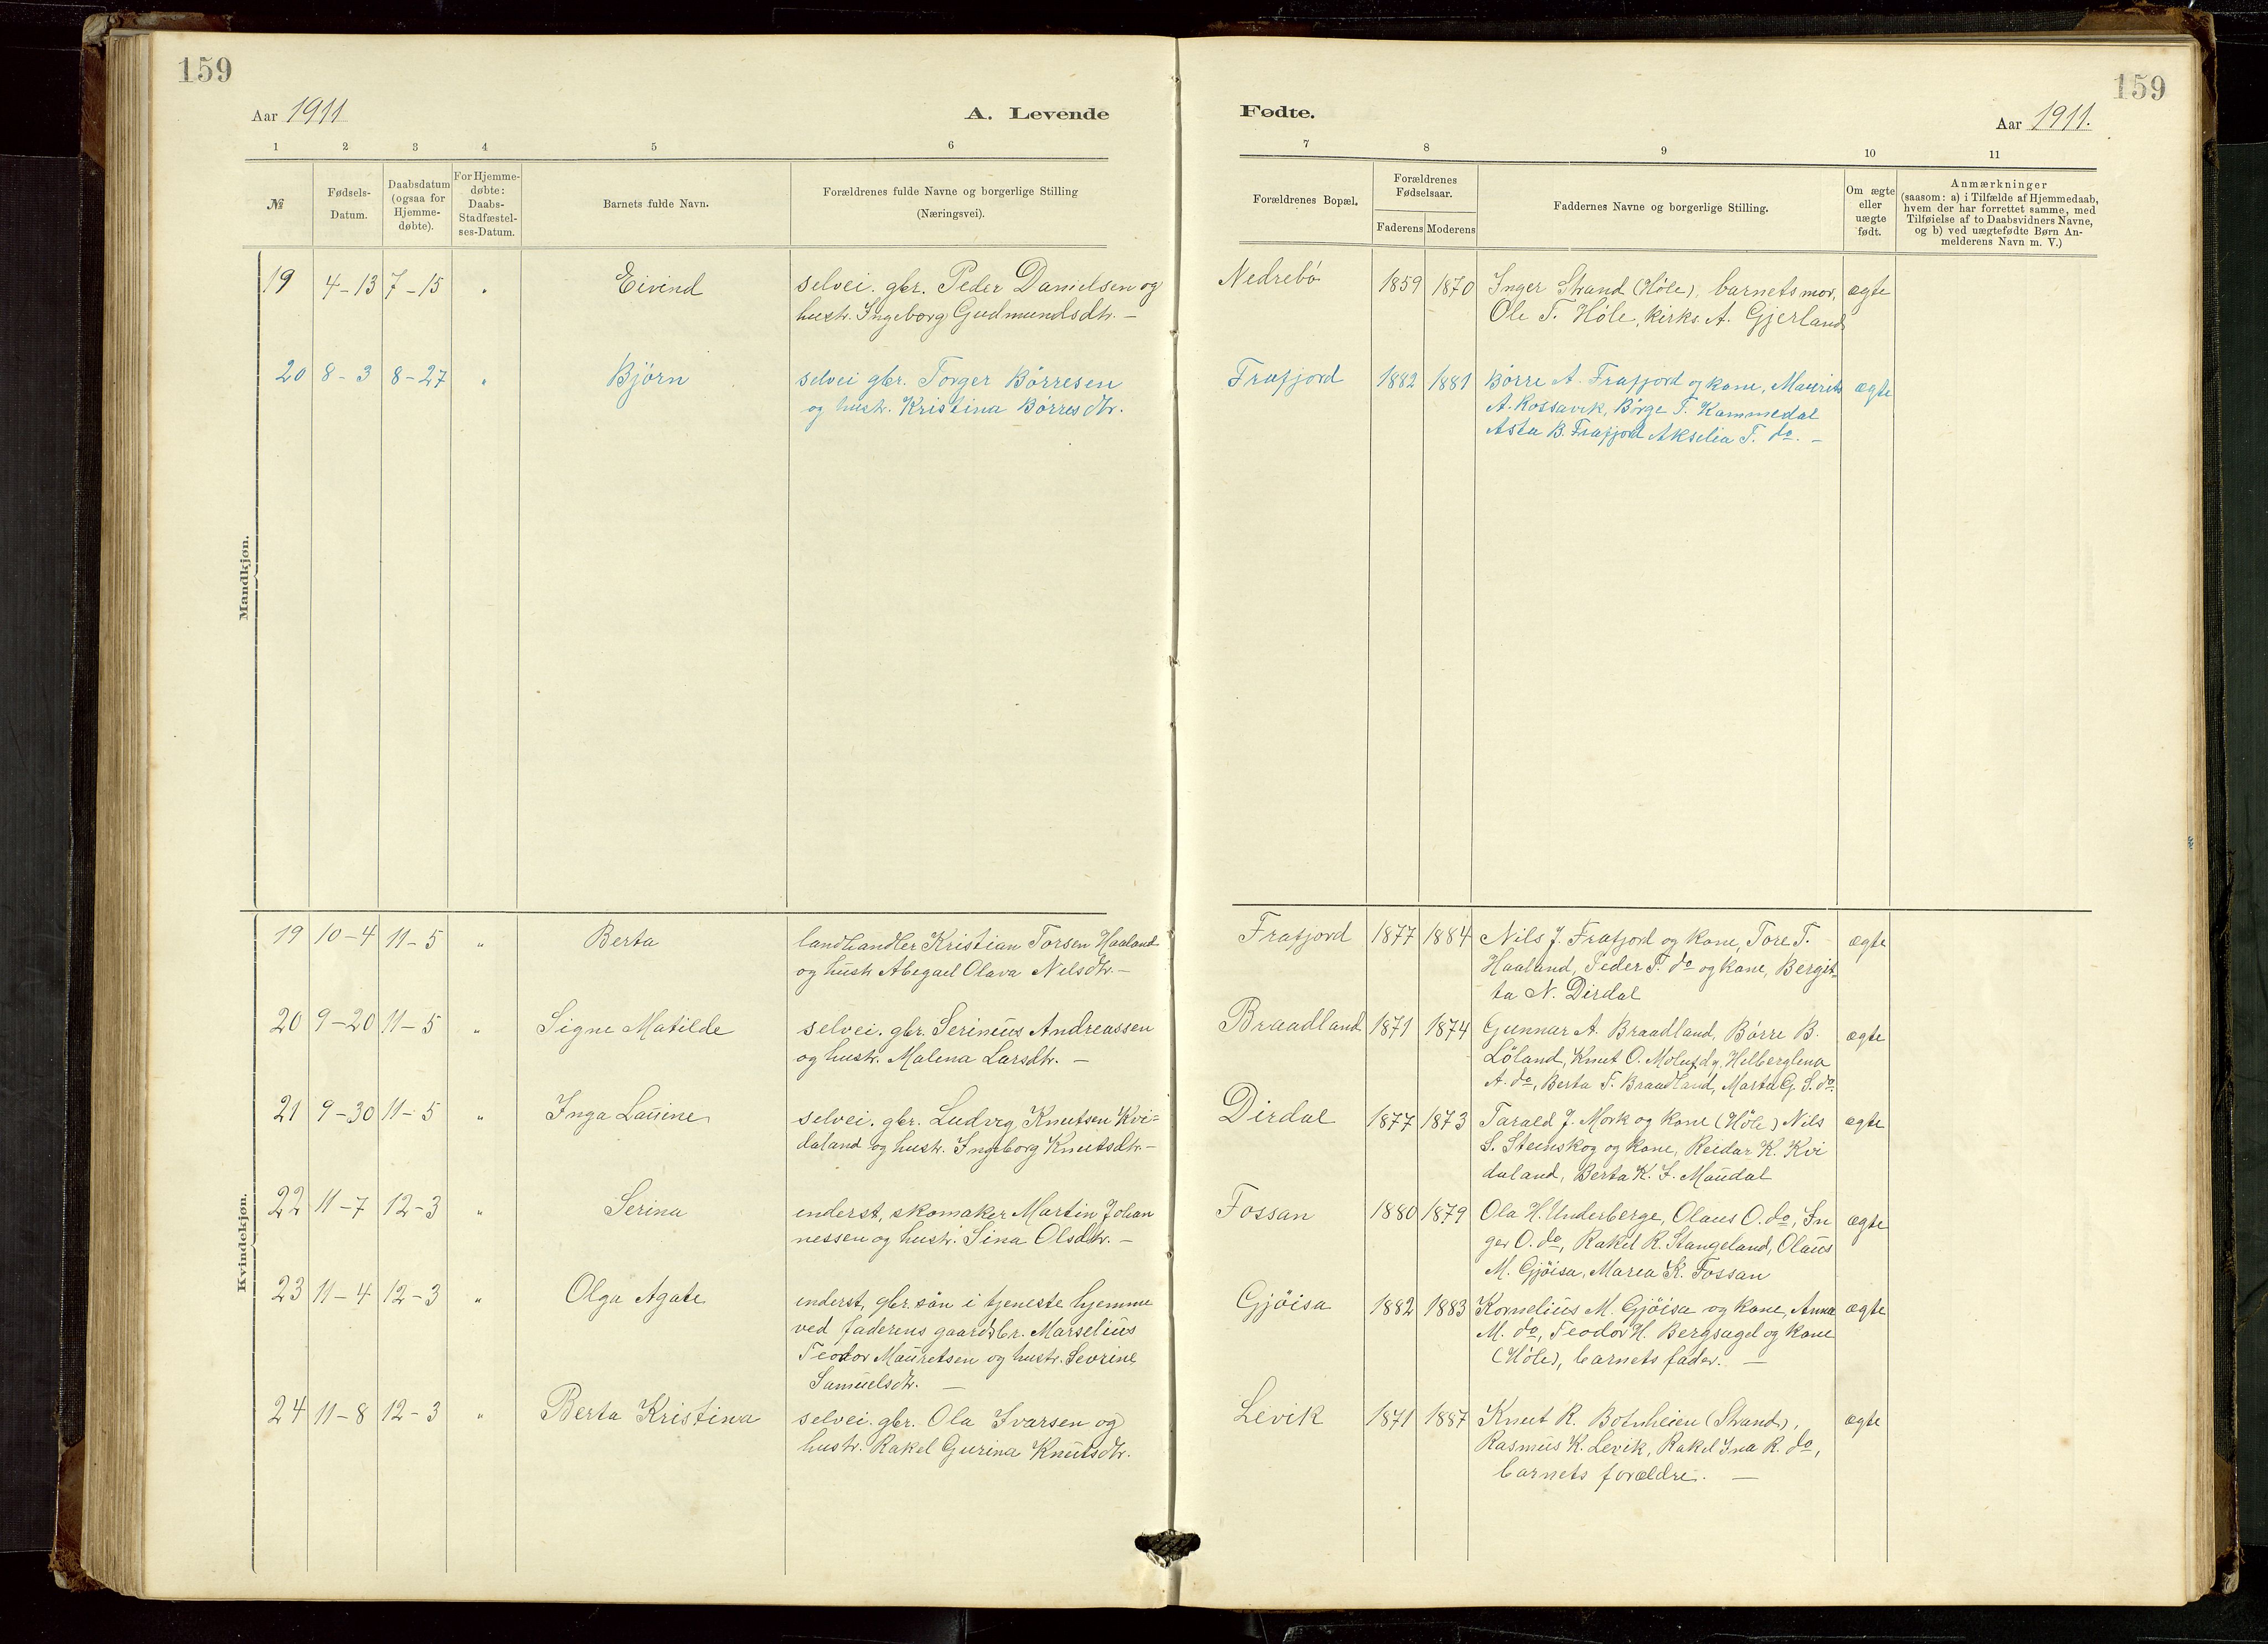 159
159
Aar 1911
A. Levende
Fødte.
Aar 1911.
1 2 3 4 5 6 7 8 9 10 11
№
Fødsels-
Datum.
Daabsdatum
(ogsaa for
Hjemme-
døbte).
For Hjemme-
døbte:
Daabs-
Stadfæstel-
ses-Datum.
Barnets fulde Navn.
Forældrenes fulde Navne og borgerlige Stilling
(Næringsvei).
Forældrenes Bopæl.
Forældrenes
Fødselsaar.
Faderens Moderens
Faddernes Navne og borgerlige Stilling.
Om ægte
eller
uægte
født.
Anmærkninger
(saasom: a) i Tilfælde af Hjemmedaab,
hvem der har forrettet samme, med
Tilføielse af to Daabsvidners Navne,
og b) ved uægtefødte Børn An-
melderens Navn m. V.)
Mandkjøn.
19 4-13 7-15 " Eivind
selvei. gbr. Peder Danielsen og
hustr. Ingeborg Gudmundsdtr. —
Nedrebö 1859 1870
Inger Strand (Höle), barnets mor,
Ole T. Höle, kirks. A. Gjerland
ægte
20 8-3 8-27 " Björn
selvei gbr. Torger Börresen
og hustr. Kristina Börresdtr.
Frafjord 1882 1881
Börre A. Frafjord og kone, Maurits
A. Rossavik, Börge T. Kommedal
Asta B. Frafjord Akselia T. do. —
ægte
Kvindekjøn.
19 10-4 11-5 " Berta
landhandler Kristian Torsen Haaland
og hustr Abegael Olava Nilsdtr. —
Frafjord 1877 1884
Nils J. Frafjord og kone, Tore T.
Haaland, Peder T. do og kone, Bergit-
ta N. Dirdal
ægte
20 9-20 11-5 " Signe Matilde
selvei. gbr. Serinius Andreassen
og hustr. Malena Larsdtr. —
Braadland 1871 1874
Gunnar A. Braadland, Börre B.
Löland, Knut O. Helberglena
A. do, Berta T. Braadland, Marta G. S. do.
ægte
21 9-30 11-5 " Inga Lauine
selvei. gbr. Ludvig Knutsen Kvi=
daland og hustr. Ingeborg Knutsdtr. —
Dirdal 1877 1873
Tarald J. Mork og kone (Höle) Nils
S. Steinskog og kone, Reidar K. Kvi
daland, Berta K. J. Maudal
ægte
22 11-7 12-3 " Serina
enderst, skomaker Martin Johan
nessen og hustr. Sina Olsdtr. —
Fossan 1880 1879
Ola H. Underberge, Olaus O. do, In
ger O. do, Rakel R. Stangeland, Olaus
M. Gjöisa, Maria K. Fossan
ægte
23 11-4 12-3 " Olga Agate
enderst, gbr. sön i tjeneste hjemme
ved faderens gaardsbr. Marselius
Teodor Mauretsen og hustr. Sevrine
Samuelsdtr. —
Gjöisa 1882 1883
Kornelius M. Gjöisa og kone, Anna
M. do, Teodor H. Bergsagel og kone
(Höle), barnets fader. —
ægte
24 11-8 12-3 " Berta Kristina
selvei. gbr. Ola Ivarsen og
hustr. Rakel Gurina Knutsdtr.
Levik 1871 1887
Knut R. Botnheien (Strand),
Rasmus K. Levik, Rakel Ina R. do,
barnets forældre. —
ægte